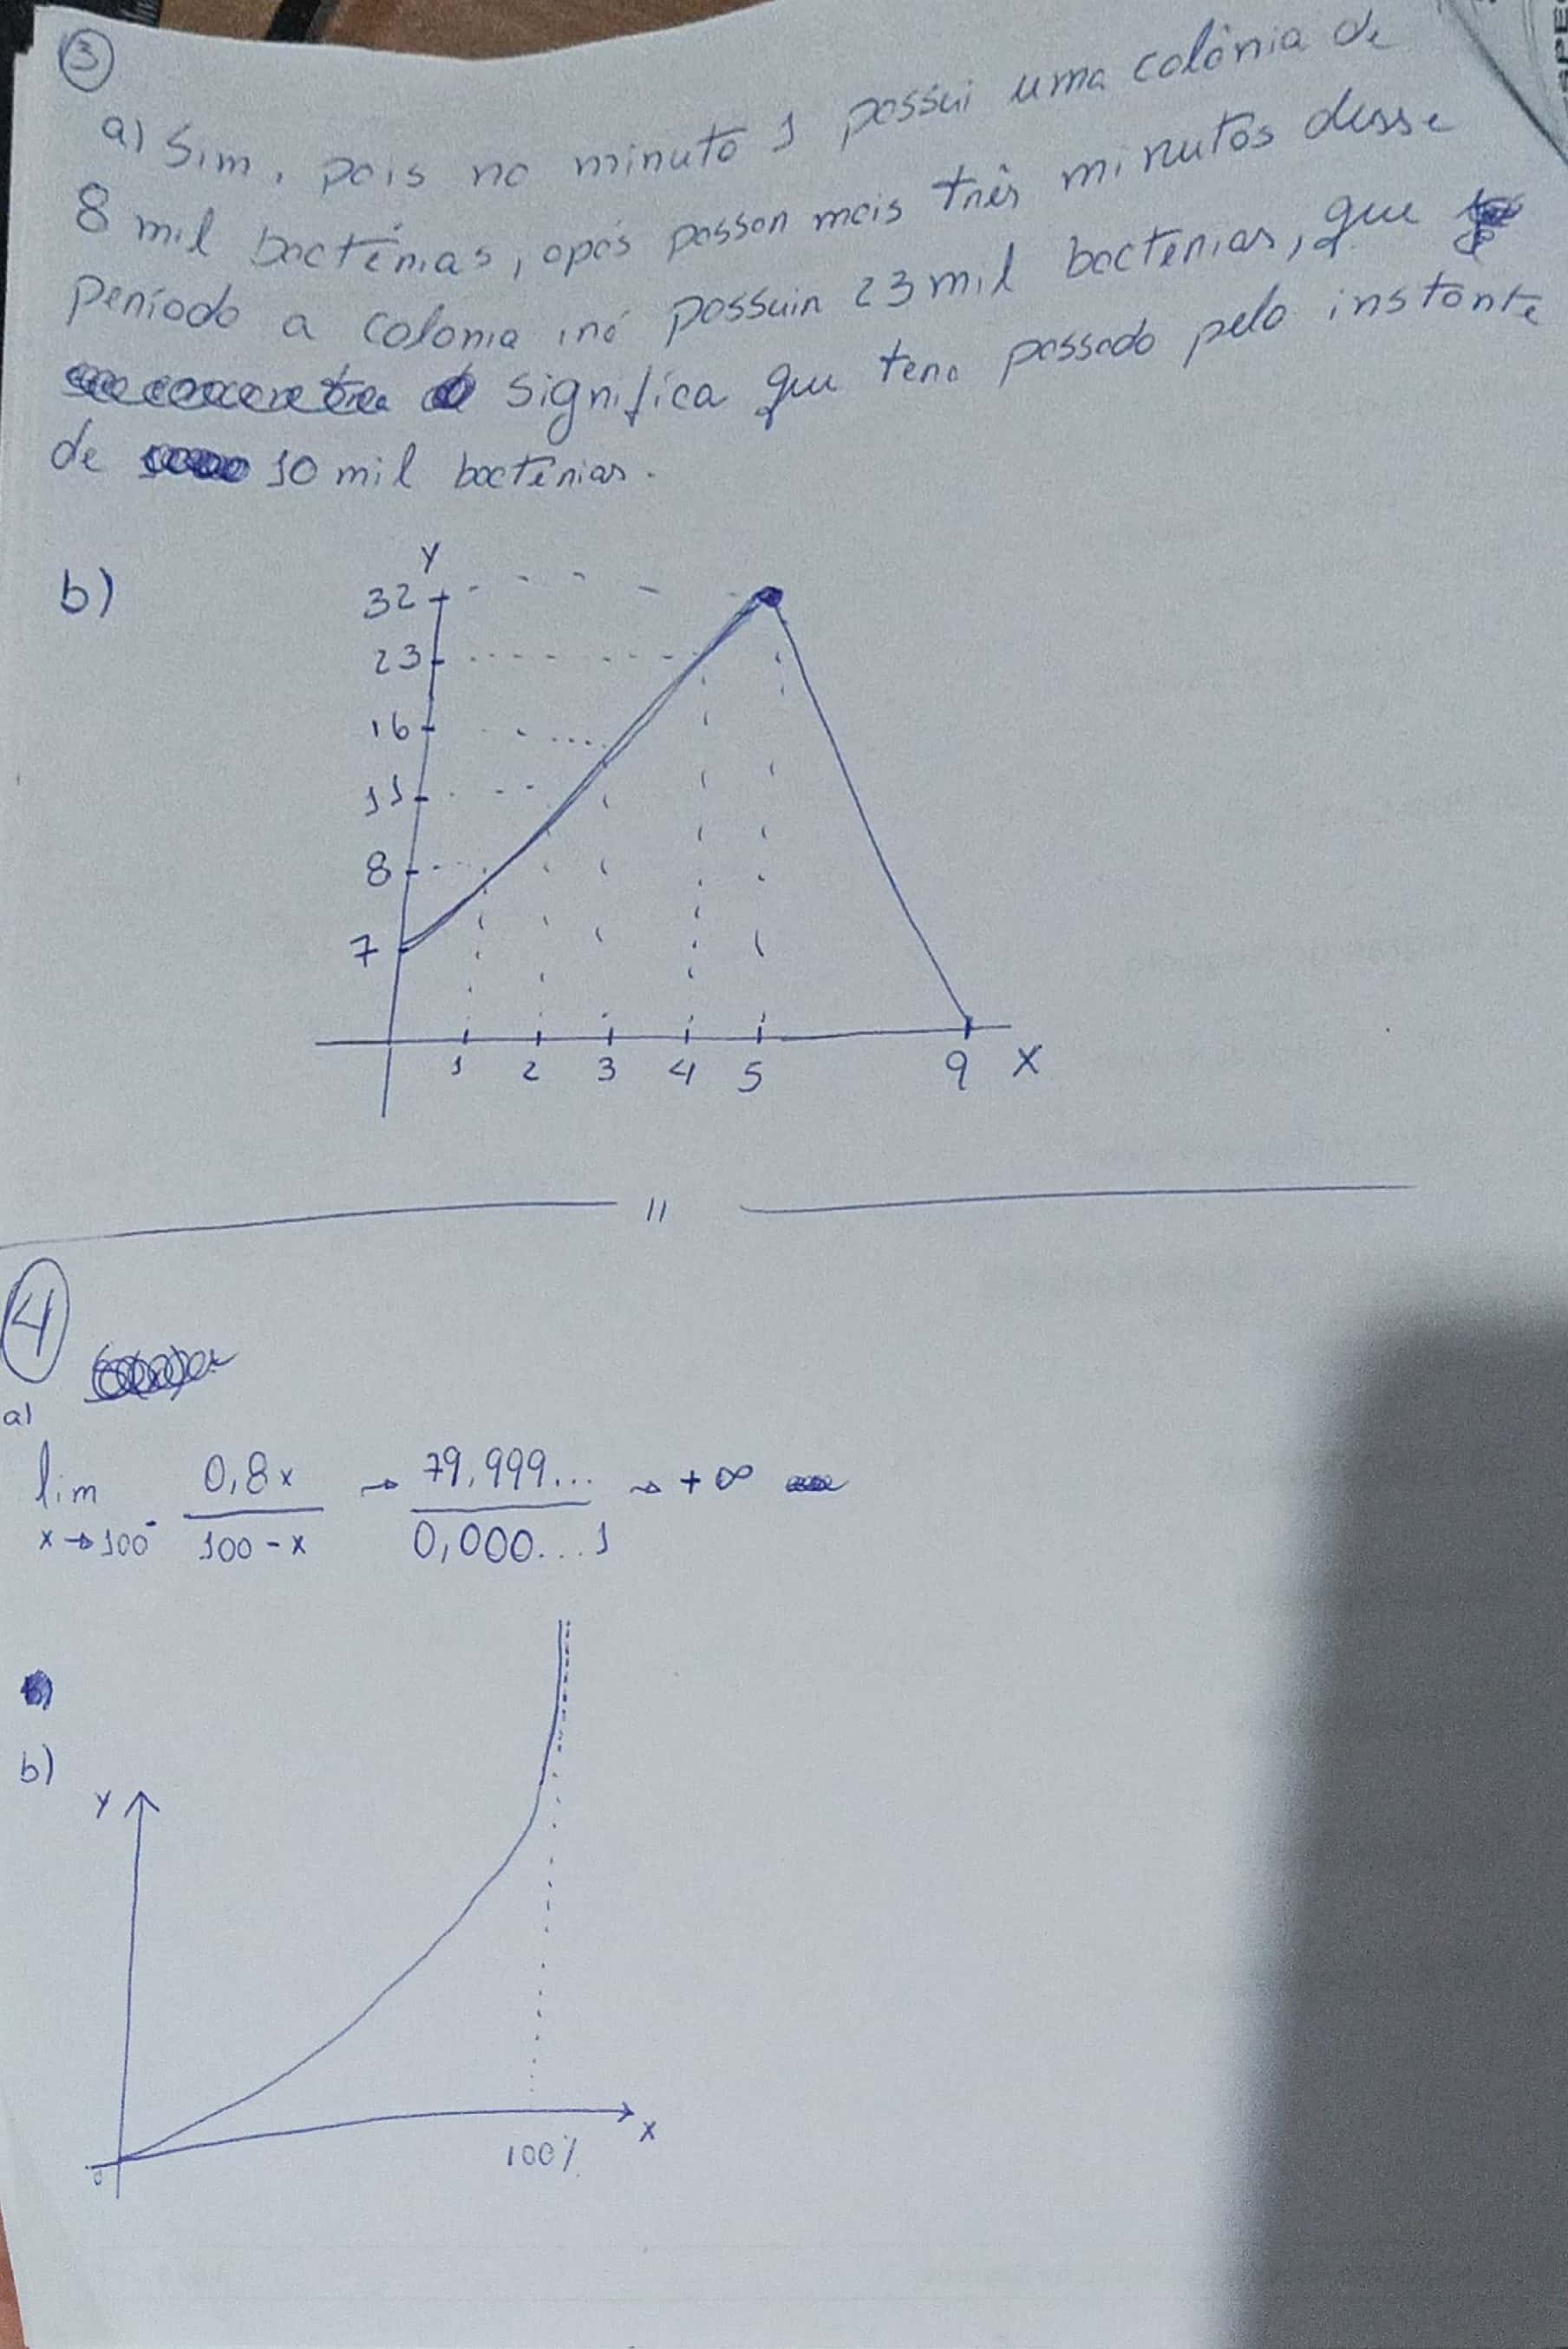 3
a) Sim, pois no minuto 1 possui uma colônia de
8 mil bactérias, após passar mais três minutos desse
período a colonia irá possuir 23 mil bactérias, que
significa que tera passado pelo instante
de 10 mil bactérias.
b)
Y
32
23
16
11
8
7
1 2 3 4 5 9 X
11
4
a)
lim x→100⁻ 0,8x / 100-x → 79,999... / 0,000...1 → +∞
b)
Y
0 100% X